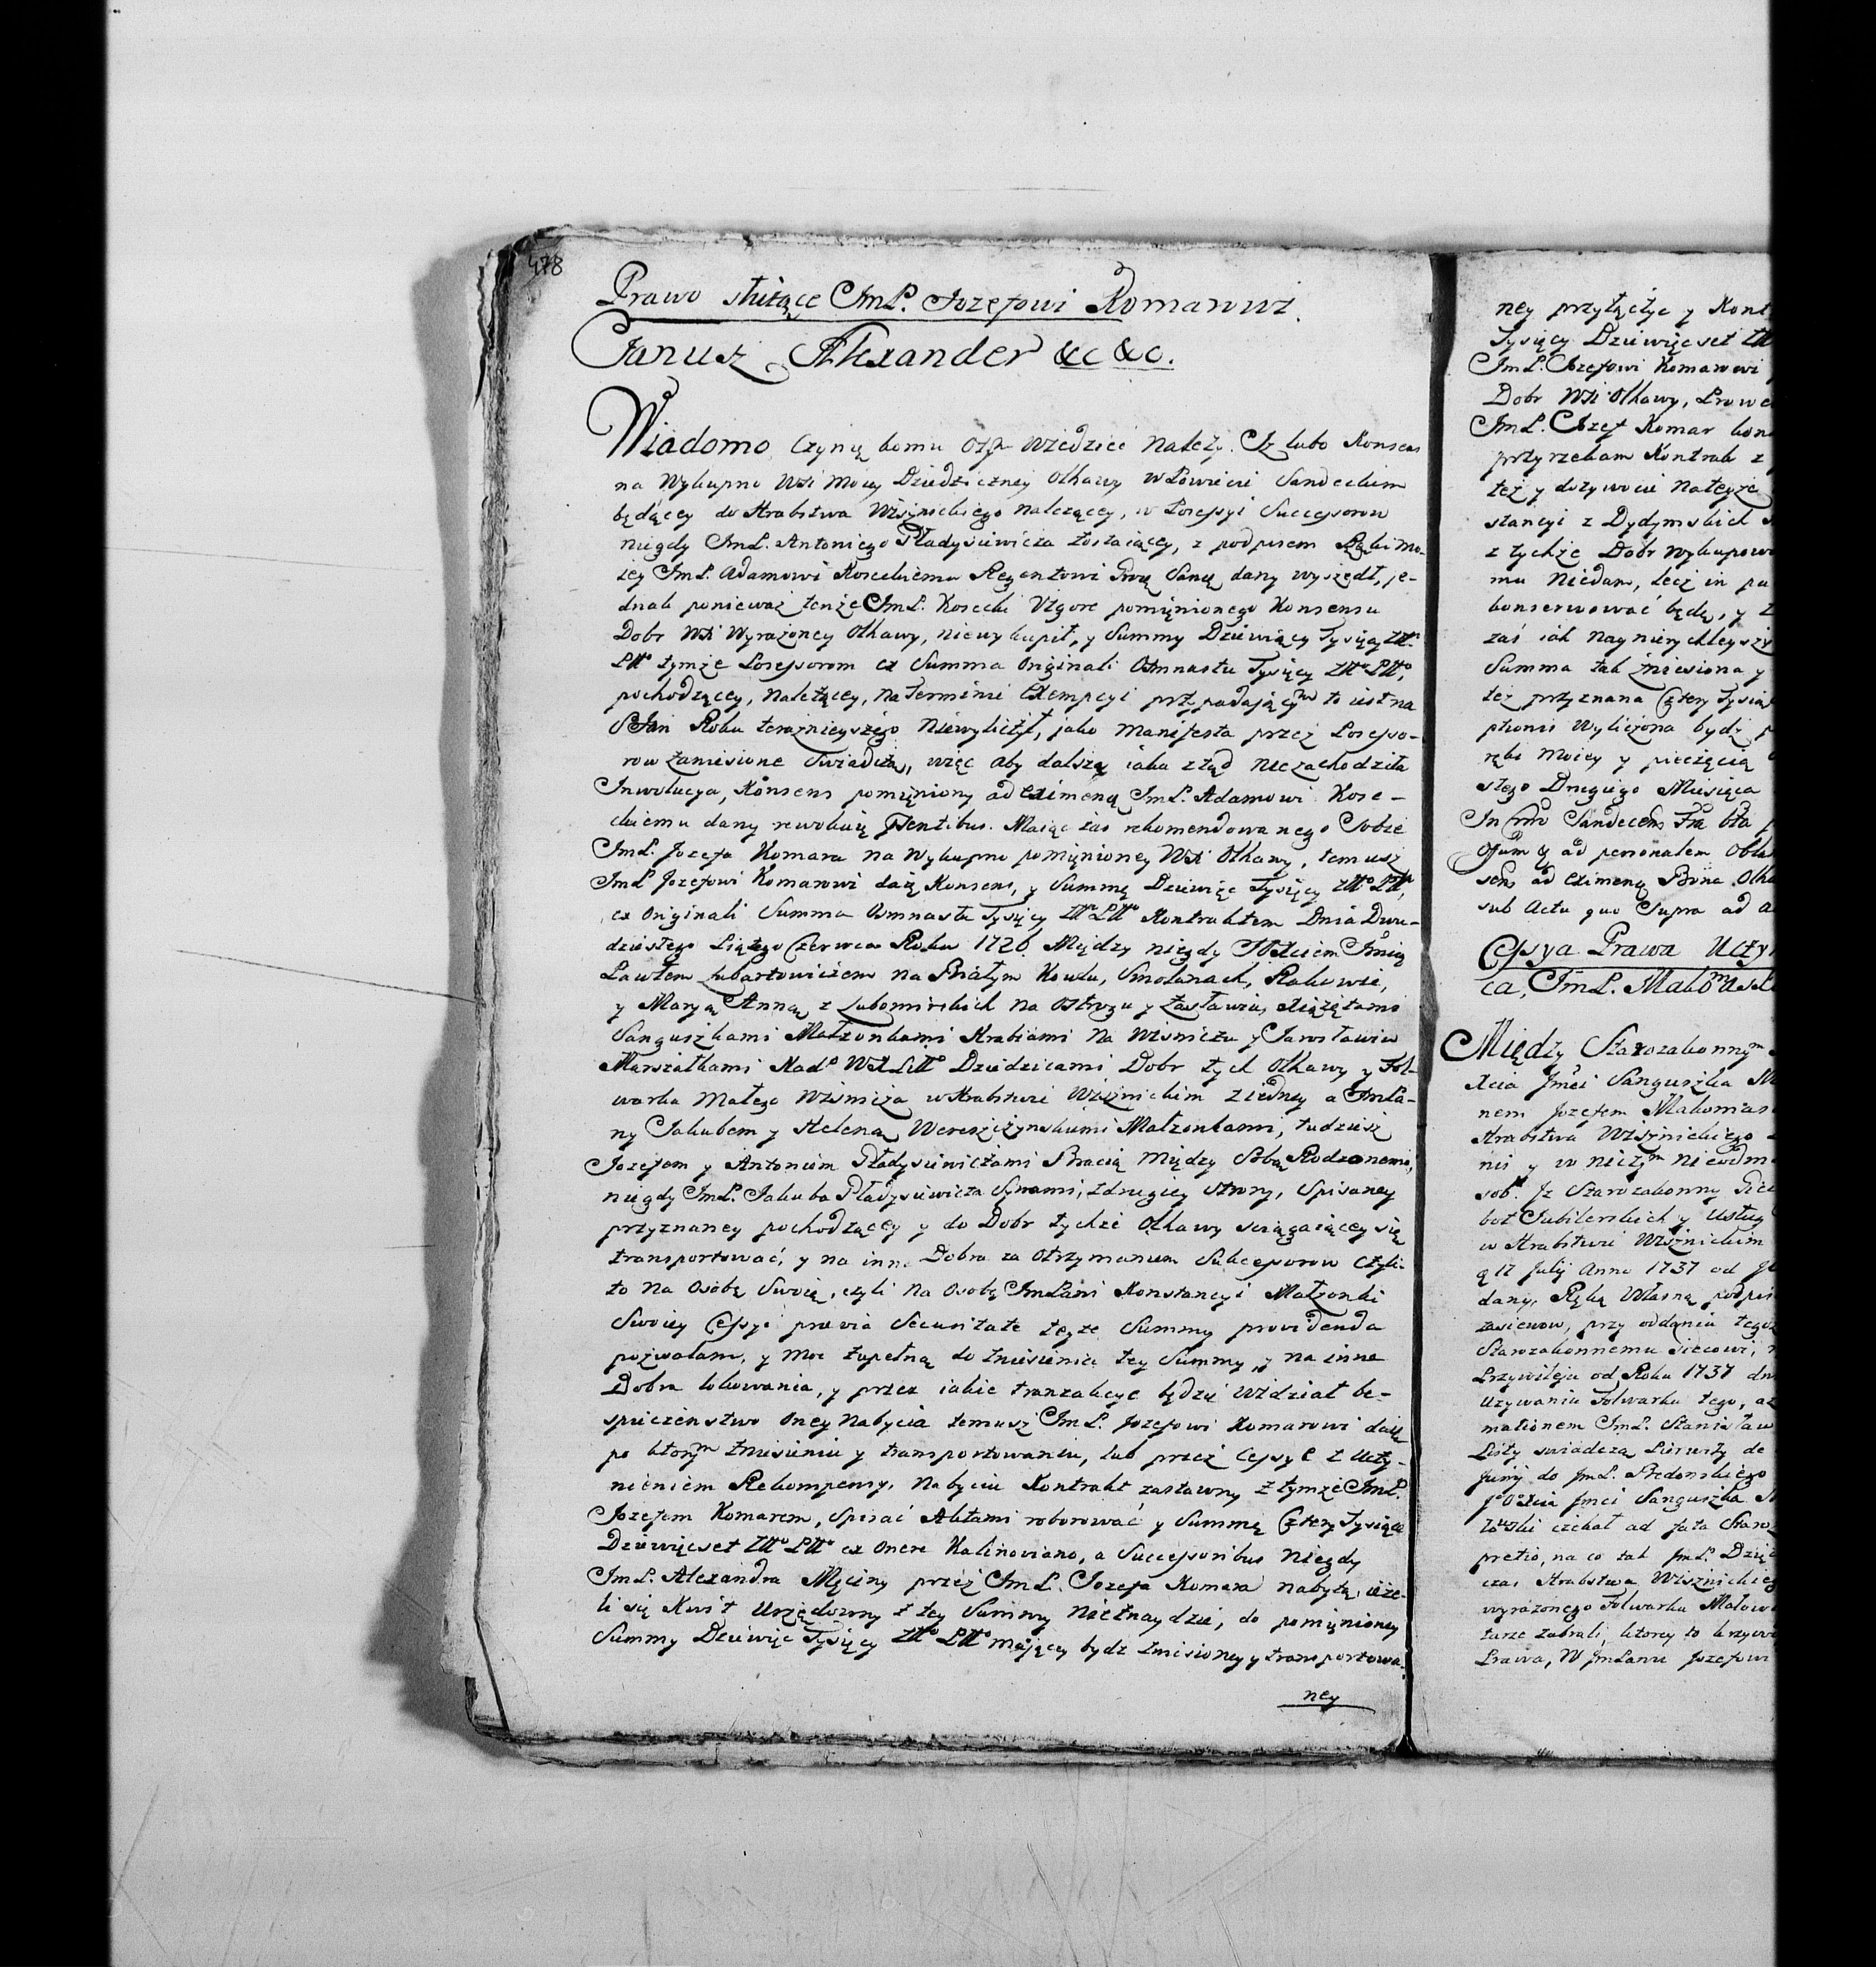 478
Prawo służące ImP. Jozefowi Komarowi.
Janusz Alexander &c &c.
Wiadomo czynię komu o tym wiedzieć należy. Iz lubo Konsens
na Wykupno Wsi moiey Dziedziczney Olkawy w Powiecie Sandeckim
będącey do Hrabstwa Wiśnickiego należącey, w Possessyi Successorow
niegdy ImP. Antoniego Pładysiewicza zostaiącey, z podpisem Ręki mo-
iey ImP. Adamowi Koseckiemu Regentowi Grod Sand dany wyszedł, je-
dnak ponieważ tenże ImP. Kosecki Vigore pomięnionego Konsensu
Dobr Wsi Wyrażoney Olkawy, niewykupił, y Summy Dziewięcy Tysięcy Złł
Płł tymże Possessorom ex Summa Originali Osmnastu Tysięcy Złł Płł,
pochodzącey, należącey, na Terminie Exempcyi przypadającym to iest na
S Jan Roku teraznieyszego niewyliczył, jako Manifesta przez Possesso-
row zaniesione swiadczą, więc aby dalsza iaka ztąd nie zachodziła
Inwolucya, Konsens pomięniony ad eximend ImP. Adamowi Kose-
ckiemu dany rewokuię psentibus. Maiąc zas rekomendowanego Sobie
ImP. Jozefa Komara na Wykupno pomięnioney Wsi Olkawy, temusz
ImP Jozefowi Komarowi daię Konsens, y Summę Dziewięc Tysięcy Złł Płł,
ex Originali Summa Osmnastu Tysięcy Złł Płł Kontraktem Dnia Dwu-
dziestego Piątego Czerwca Roku 1726 Między niegdy
Pawłem Lubartowiczem na Białym Kowlu, Smolanach, Rakowie,
y Maryą Anną z Lubomirskich na Ostrogu y Zasławiu, Xiążętami
Sanguszkami Małzonkami Hrabiami na Wisniczu y Jarosławiu
Marszałkami Nad Dziedzicami Dobr tych Olkawy y Fol-
warku Małego Wiśnicza w Hrabstwie Wiśznickim z iedney a ImPa-
ny Jakubem y Heleną Wereszczynskiemi Małzonkami, tudziesz
Jozefem y Antonim Pładysiewiczami Bracią między Sobą Rodzonemi,
niegdy ImP. Jakuba Pładysiewicza Synami, zdrugiey strony, Spisaney
przyznaney pochodzącey y do Dobr tychże Olkawy sciągaiącey się
transportować, y na inne Dobra za otrzymaniem Sukcessorow czyli
to na Osobę Swoię, czyli na Osobę ImPani Konstancyi Małzonki
Swoiey Cessyi praevia Securitate teyze Summy providenda
pozwalam, y moc zupełną do zniesienia tey Summy, y na inne
Dobra lokowania, y przez iakie tranzakcye będzie widział be-
spieczeństwo oney nabycia temusz ImP. Jozefowi Komarowi daię
po ktorym zniesieniu y transportowaniu, lub przez Cessye z uczy-
nieniem Rekompensy, nabyciu Kontrakt zastawny z tymże ImP.
Jozefem Komarem, spisać Aktami roborować y Summę Cztery Tysiące
Dziewięcset Złł Płł ex onere Kalinoviano, a Successoribus niegdy
ImP. Alexandra Męciny przez ImP. Jozefa Komara nabytą, ieże-
li się Kwit Urzędowny z tey Summy nieznaydzie, do pomięnioney
Summy Dziewięc Tysięcy Złł Płł mającey bydz zniesioney y transportowa-
ney
ney przyłączyc y Kont
Tysięcy Dziewięcset Złł
ImP. Jozefowi Komarowi
Dobr Wsi Olkawy, Prawe
ImP. Jozef Komar kon
przyrzekam Kontrakt z
też y dozywocie na teyże
stancyi z Dydymskich
z tychże Dobr wykupow
mu niedam, lecz in pa
konserwować będę, y
zaś iak nayprędzey
Summa tak zniesiona y
tez przyznana Cztery Tysiąc
ptionis wyliczona bydz
ręki moiey y pieczęcią
stego Drugiego Miesiąca
In Sandecens
ad personalem Obla
sens ad eximend Bona Olka
sub Actu quo Supra ad a
Cessya Prawa Uczy
ca, ImP.
Między Starozakonnym
Xcia Jmci Sanguszka M
nem Jozefem Makomas
Hrabstwa Wisznickiego
nis y w niczym nieodm
sob. Iz Starozakonny
bot Jubilerskich y Usług
w Hrabstwie Wisznickim
17 Julij Anno 1737 od
dany, Ręką Własną podpis
zasiewow, przy oddaniu tegoż
Starozakonnemu
Przywileju od Roku 1737 dn
uzywania Folwarku tego, aż
mationem ImP. Stanisław
Listy swiadczą Pierwszy de
Junij do ImP. Predonskiego
Xcia Jmci Sanguszka
ad fata Staro
pretio, na co tak ImP.
czas Hrabstwa Wisznickieg
wyrażonego Folwarku Małow
tarze zabrali, ktorey to krzyw
Prawa, W ImPanu Jozefowi